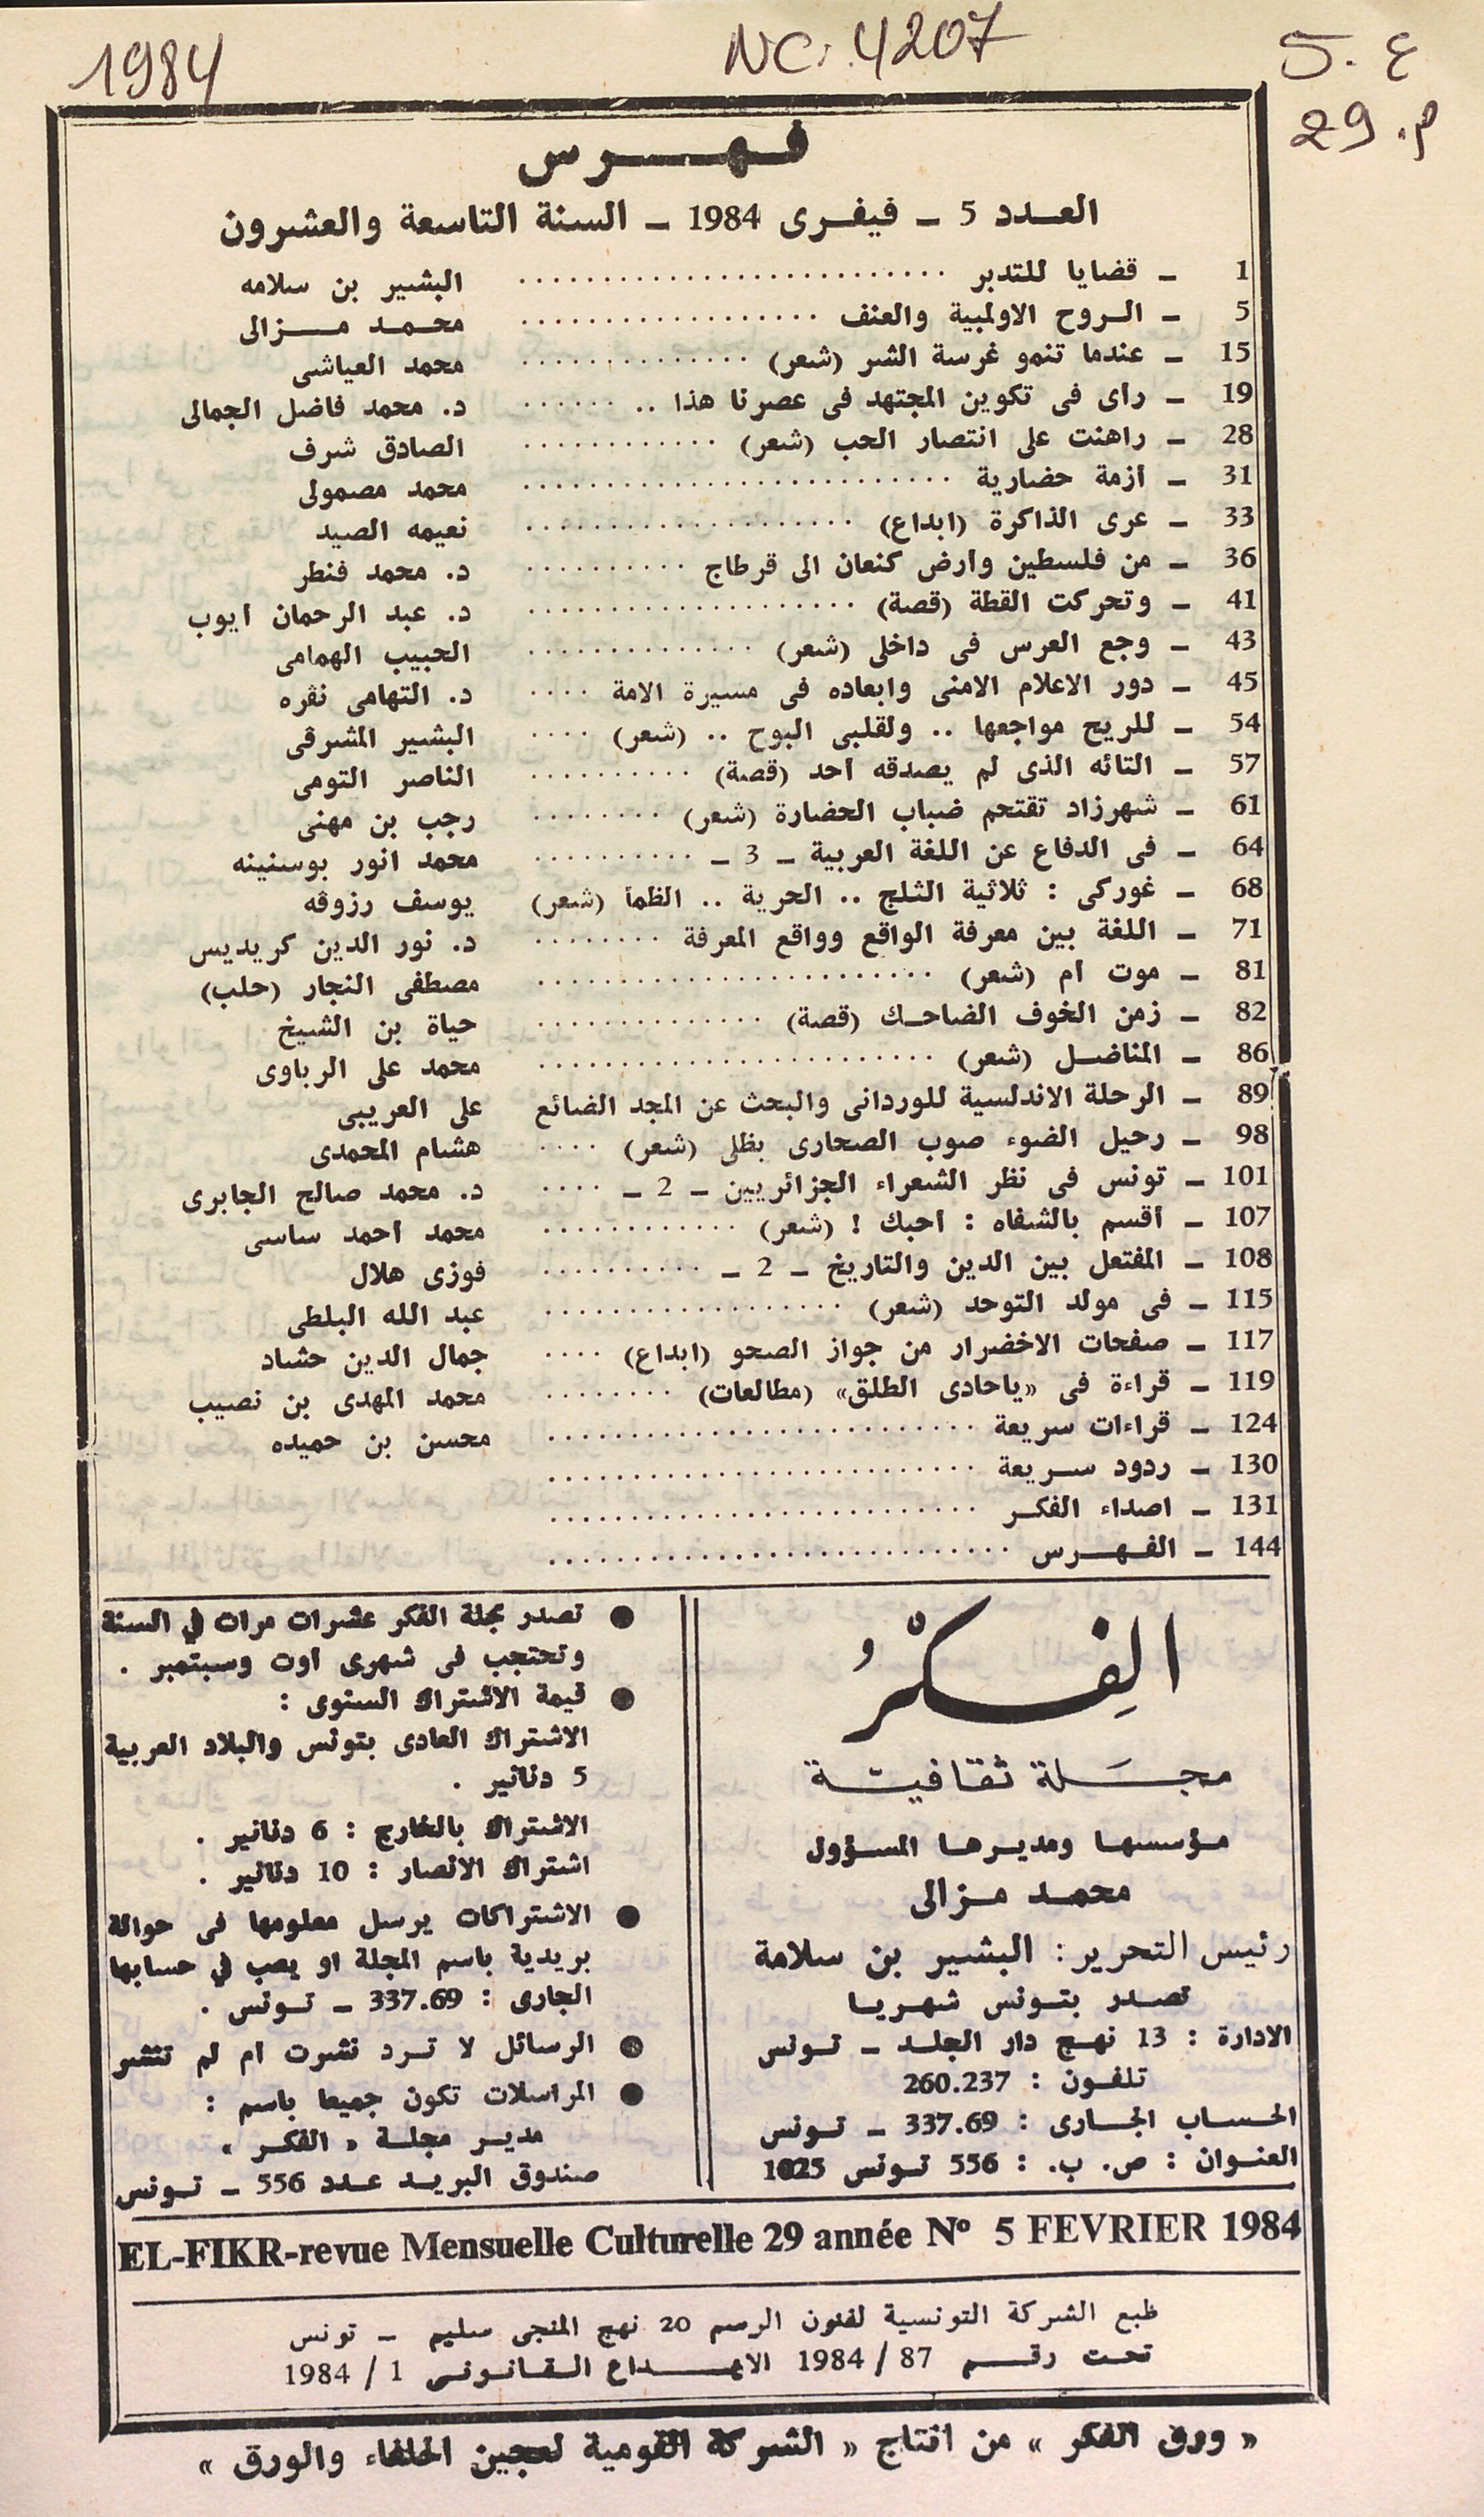 1984
NC. 4207
ع .5
م. 29
فهرس
العدد 5 ـ فيفرى 1984 ـ السنة التاسعة والعشرون
1 ـ قضايا للتدبر .......................... البشير بن سلامه
5 ـ الروح الاولمبية والعنف .................. محمد مزالى
15 ـ عندما تنمو غرسة الشر (شعر) .............. محمد العياشى
19 ـ رأى فى تكوين المجتهد فى عصرنا هذا .. ...... د. محمد فاضل الجمالى
28 ـ راهنت على انتصار الحب (شعر) ............ الصادق شرف
31 ـ أزمة حضارية .......................... محمد مصمولى
33 ـ عرى الذاكرة (ابداع) .................... نعيمه الصيد
36 ـ من فلسطين وأرض كنعان الى قرطاج .......... د. محمد فنطر
41 ـ وتحركت القطة (قصة) .................... د. عبد الرحمان أيوب
43 ـ وجع العرس فى داخلى (شعر) .............. الحبيب الهمامى
45 ـ دور الاعلام الامنى وابعاده فى مسيرة الامة .... د. التهامى نقره
54 ـ للريح مواجعها .. ولقلبى البوح .. (شعر) .... البشير المشرقى
57 ـ التائه الذى لم يصدقه أحد (قصة) .......... الناصر التومى
61 ـ شهرزاد تقتحم ضباب الحضارة (شعر) ........ رجب بن مهنى
64 ـ فى الدفاع عن اللغة العربية ـ 3 ـ .......... محمد أنور بوسنينه
68 ـ غوركى : ثلاثية الثلج .. الحرية .. الظمأ (شعر) يوسف رزوقه
71 ـ اللغة بين معرفة الواقع وواقع المعرفة ........ د. نور الدين كريديس
81 ـ موت أم (شعر) ........................ مصطفى النجار (حلب)
82 ـ زمن الخوف الضاحك (قصة) .............. حياة بن الشيخ
86 ـ المناضل (شعر) ........................ محمد على الرباوى
89 ـ الرحلة الاندلسية للوردانى والبحث عن المجد الضائع على العريبى
98 ـ رحيل الضوء صوب الصحارى بظلى (شعر) .... هشام المحمدى
101 ـ تونس فى نظر الشعراء الجزائريين ـ 2 ـ .... د. محمد صالح الجابرى
107 ـ أقسم بالشفاه : أحبك ! (شعر) ............ محمد أحمد ساسى
108 ـ المفتعل بين الدين والتاريخ ـ 2 ـ .......... فوزى هلال
115 ـ فى مولد التوحد (شعر) .................. عبد الله البلطى
117 ـ صفحات الاخضرار من جواز الصحو (ابداع) .... جمال الدين حشاد
119 ـ قراءة فى «ياحادى الطلق» (مطالعات) ........ محمد المهدى بن نصيب
124 ـ قراءات سريعة .......................... محسن بن حميده
130 ـ ردود سريعة ..........................
131 ـ أصداء الفكر ..........................
144 ـ الفهرس ............................
الفِكْرُ
مجَلة ثقافيّة
مؤسسها ومديرها المسؤول
محمد مزالى
رئيس التحرير: البشير بن سلامة
تصدر بتونس شهريا
الادارة : 13 نهج دار الجلد ـ تونس
تلفون : 260.237
الحساب الجارى : 337.69 ـ تونس
العنوان : ص. ب. : 556 تونس 1025
● تصدر مجلة الفكر عشرات مرات في السنة
وتحتجب فى شهرى أوت وسبتمبر .
● قيمة الاشتراك السنوى :
الاشتراك العادى بتونس والبلاد العربية
5 دنانير .
الاشتراك بالخارج : 6 دنانير .
اشتراك الانصار : 10 دنانير .
● الاشتراكات يرسل معلومها فى حوالة
بريدية باسم المجلة او يصب في حسابها
الجارى : 337.69 ـ تونس .
● الرسائل لا ترد نشرت ام لم تنشر
● المراسلات تكون جميعا باسم :
مدير مجلة « الفكر »
صندوق البريد عدد 556 ـ تونس
EL-FIKR-revue Mensuelle Culturelle 29 année N° 5 FEVRIER 1984
طبع الشركة التونسية لفنون الرسم 20 نهج المنجى سليم ـ تونس
تحت رقم 87 / 1984 الايداع القانونى 1 / 1984
« ورق الفكر » من انتاج « الشركة القومية لعجين الحلفاء والورق »